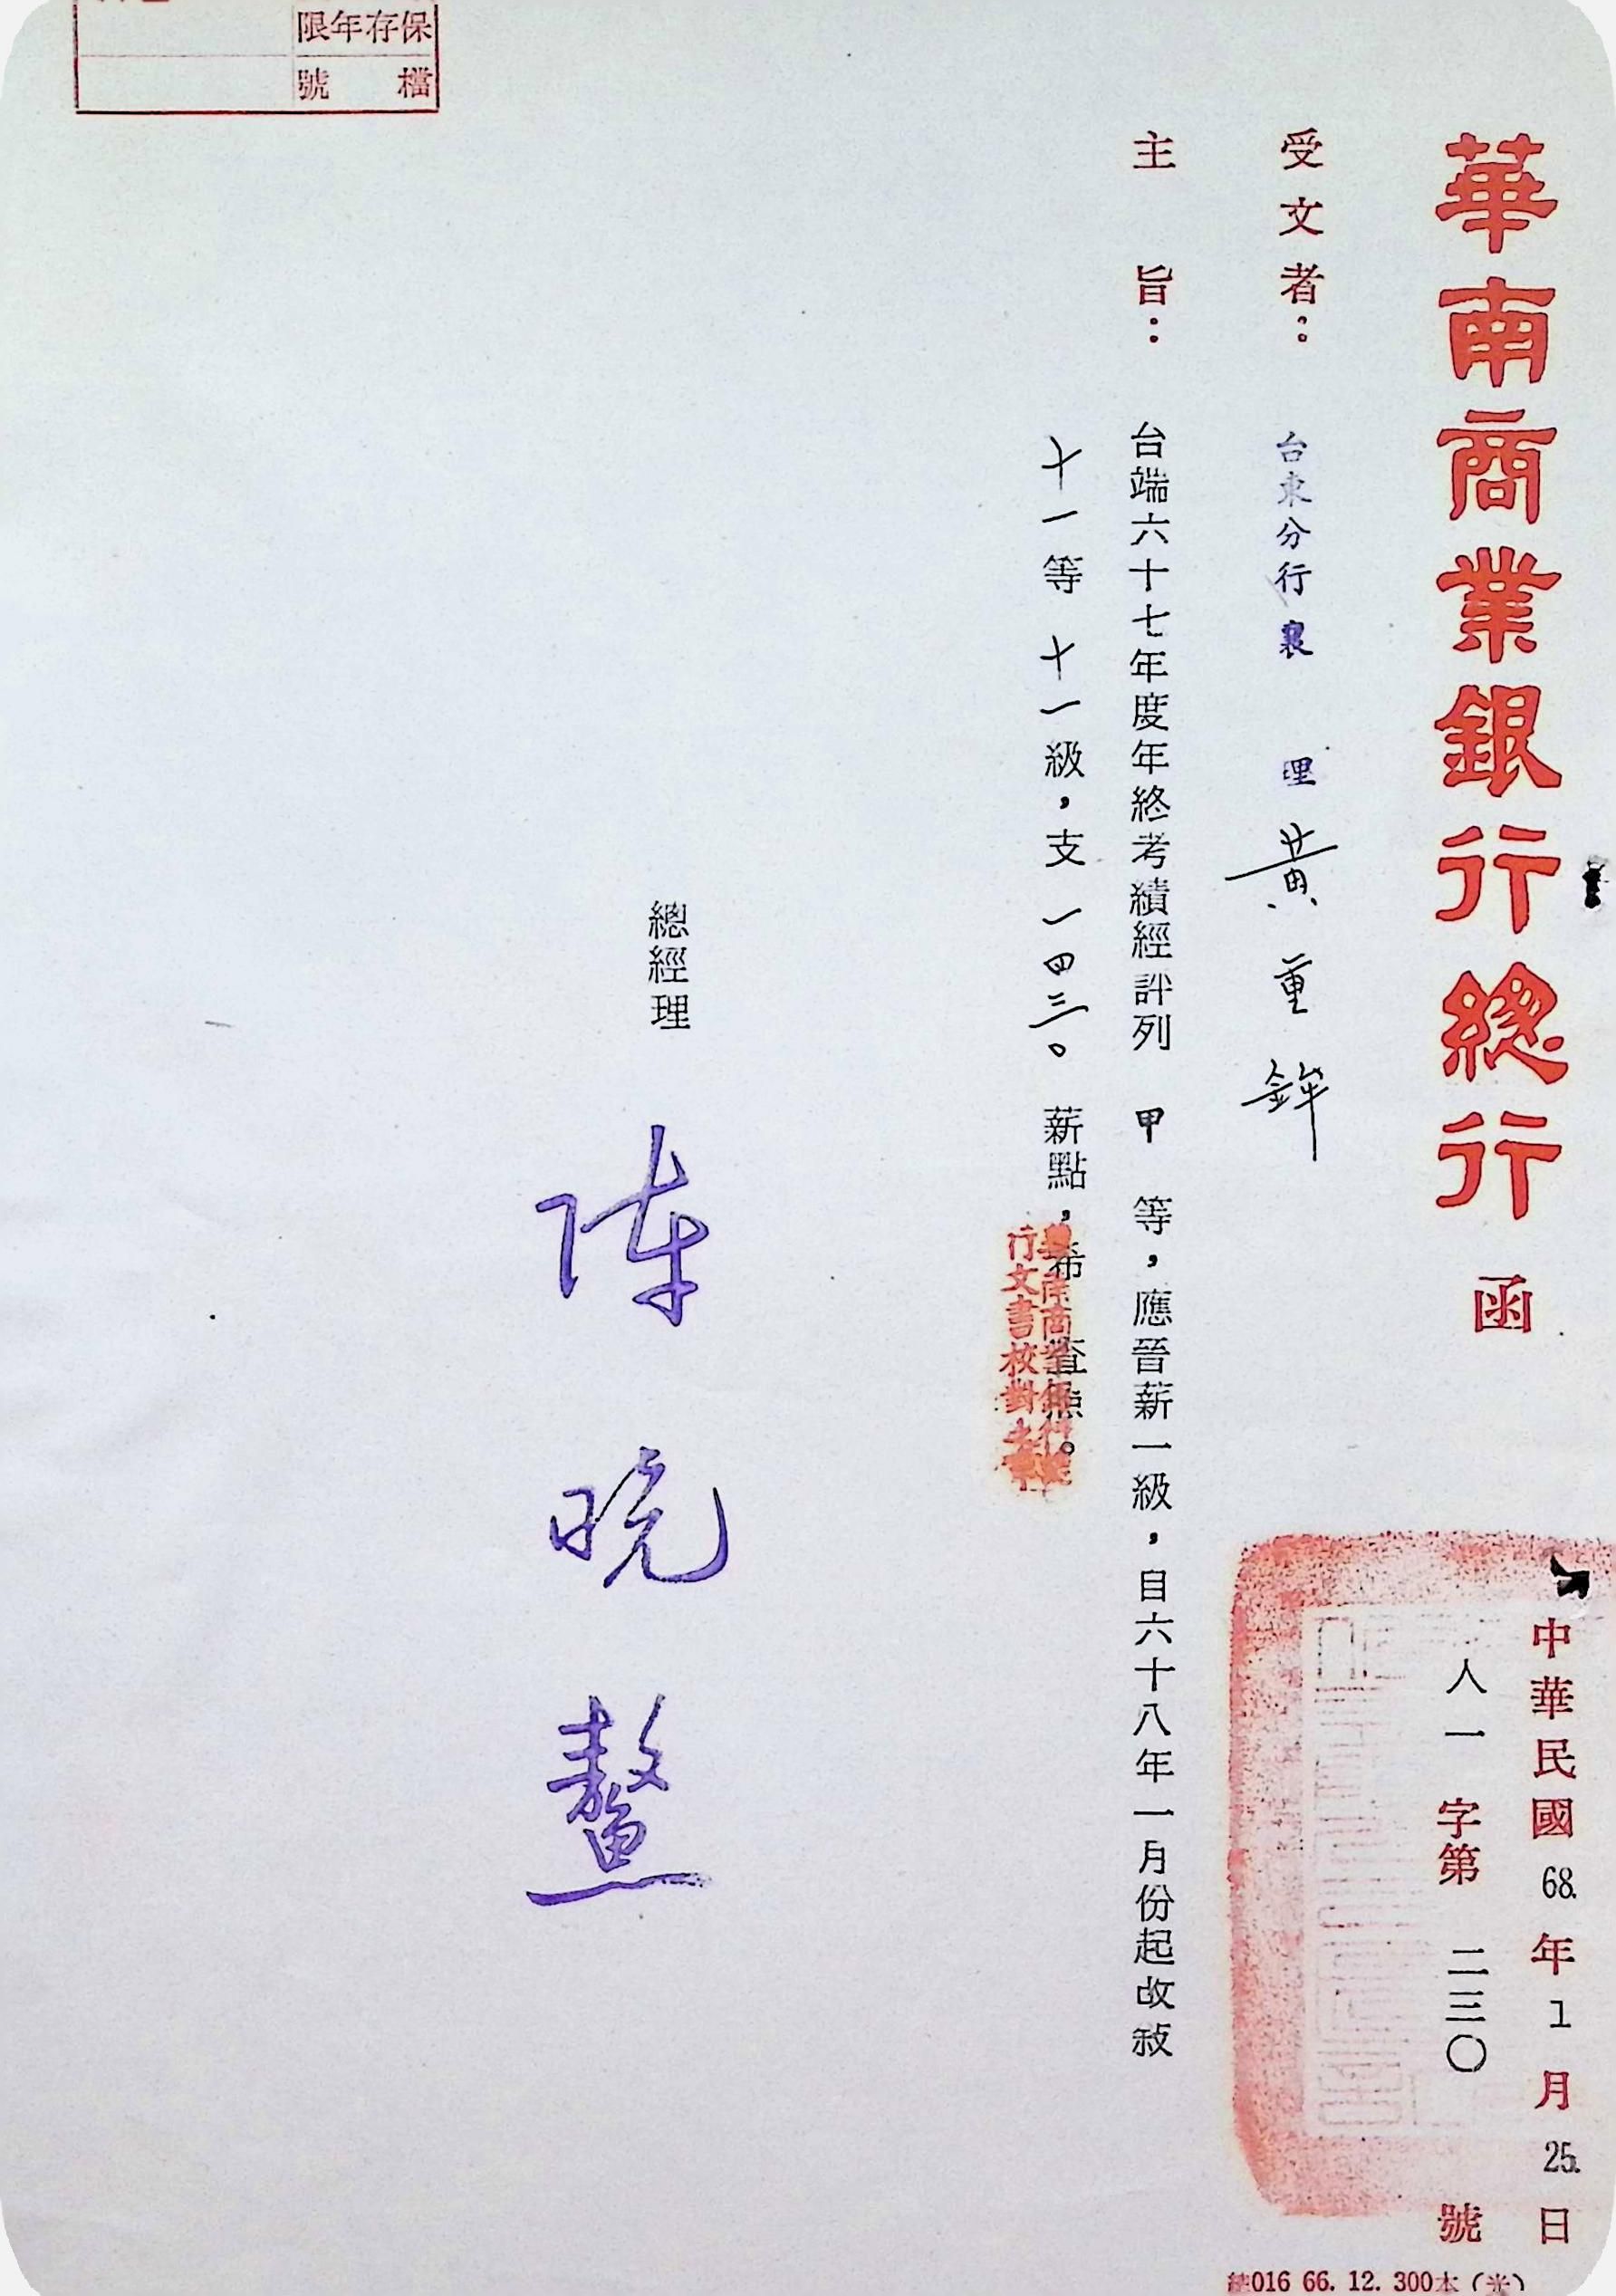 華南商業銀行總行 函
中華民國 68. 年 1 月 25. 日
人一 字第 二三〇 號
受文者： 台東分行襄 理 黃重鉾
主 旨： 台端六十七年度年終考績經評列 甲 等，應晉薪一級，自六十八年一月份起改敍
十一等 十一級，支 一四三〇 薪點，希 查照。
華南商業銀行總
行文書校對之章
總經理 陳晩鰲
保存年限
檔 號
總016 66. 12. 300本（米）